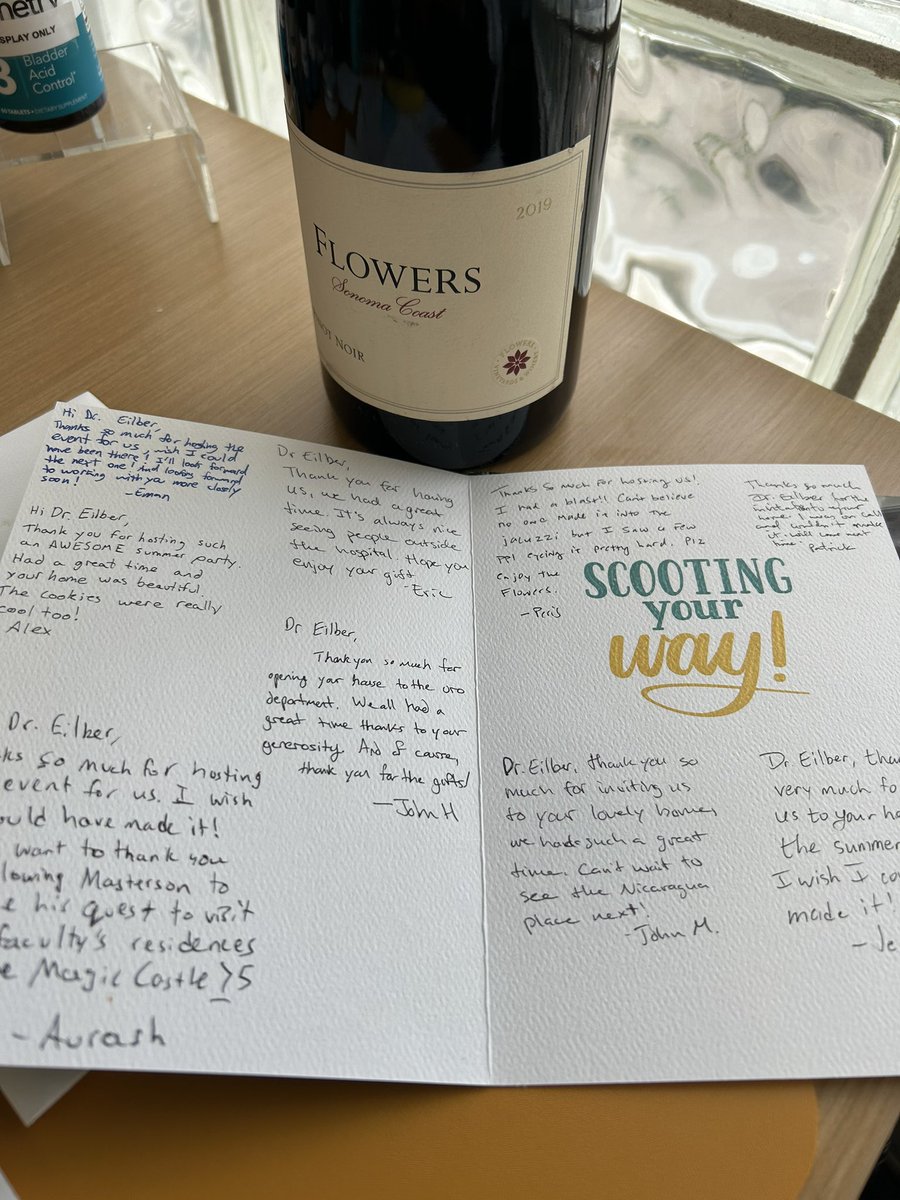 metry
DISPLAY ONLY
Bladder
Acid
Control
90 TABLETS • DIETARY SUPPLEMENT
2019
FLOWERS
Sonoma Coast
NOT NOIR
FLOWERS
VINEYARDS & WINERY
Hi Dr. Eilber,
Thanks so much for hosting the
event for us, wish I could
have been there! I'll look forward
the next one! And looking forward
to working with you more closely
soon!
-Emon
Hi Dr. Eilber,
Thank you for hosting such
an AWESOME summer party.
Had a great time and
your home was beautiful.
The cookies were really
cool too!
Alex
Dr. Eilber,
ks so much for hosting
event for us. I wish
ould have made it!
want to thank you
lowing Masterson to
e his quest to visit
faculty's residences
e Magic Castle >5
- Aurash
Dr Eilber,
Thank you for having
us, we had a great
time. It's always nice
seeing people outside
the hospital. Hope you
enjoy your gift.
-Eric
Dr Eilber,
Thank you so much for
opening your house to the uro
department. We all had a
great time thanks to your
generosity. And of course,
thank you for the gifts!
-John H
Thanks so much for hosting us!
I had a blast!! Can't believe
no one made it into the
jacuzzi but I saw a few
ppl eyeing it pretty hard. Plz
enjoy the
Flowers.
Thanks so much
Dr. Eilber for the
invitation to your
home. I was on call
and couldn't make
it. Will come next
time. Patrick
SCOOTING
your
way!
Dr. Eilber, thank you so
much for inviting us
to your lovely home,
we had such a great
time. Can't wait to
see the Nicaragua
place next!
-John M.
Dr. Eilber, tha
very much fo
us to your ho
the summer
I wish I co
made it!
- Je